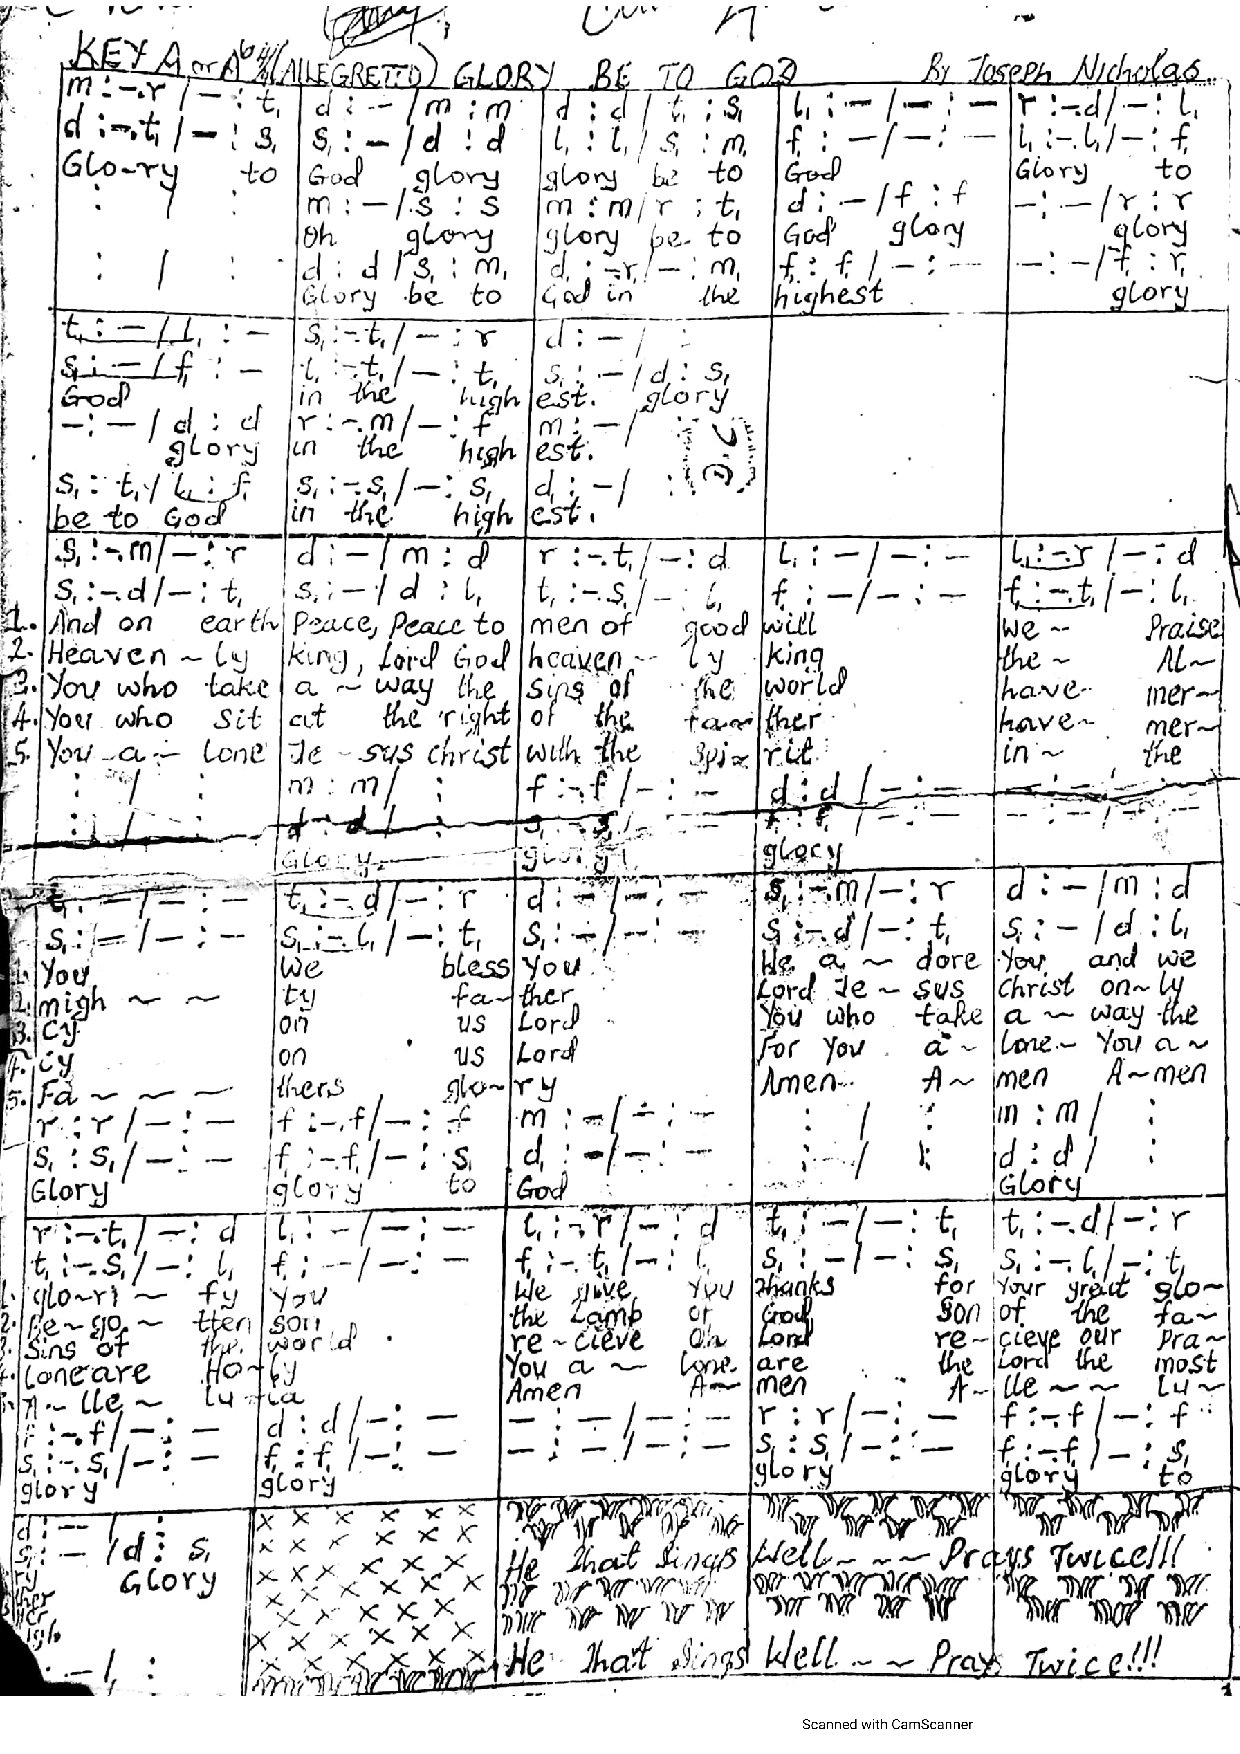 KEY A or Ab 6/4 (ALLEGRETTO) GLORY BE TO GOD By Joseph Nicholas
m : -.r / - : t, d : - / m : m d : d / t, : s, l, : - / - : - r : -.d / - : l,
d : -.t, / - : s, s, : - / d : d l, : l, / s, : m, f, : - / - : - l, : -.l, / - : f,
Glo~ry to God glory glory be to God Glory to
: / : m : - / s : s m : m / r : t, d : - / f : f - : - / r : r
Oh glory glory be to God glory glory
: / : d : d / s, : m, d, : -.r, / - : m, f, : f, / - : - - : - / f, : r,
Glory be to God in the highest glory
t, : - / l, : - s, : -.t, / - : r d : - / :
s, : - / f, : - l, : -.t, / - : t, s, : - / d : s,
God in the high est. glory
- : - / d : d r : -.m / - : f m : - /
glory in the high est. D.C
s, : t, / l, : f, s, : -.s, / - : s, d : - / :
be to God in the high est.
s, : -.m / - : r d : - / m : d r : -.t, / - : d l, : - / - : - l, : -.r / - : d
s, : -.d / - : t, s, : - / d : l, t, : -.s, / - : l, f, : - / - : - f, : -.t, / - : l,
1. And on earth Peace, Peace to men of good will We ~ Praise
2. Heaven ~ ly king, Lord God heaven ~ ly king the ~ Al~
3. You who take a ~ way the sins of the world have mer~
4. You who sit at the right of the fa~ ther have~ mer~
5. You a ~ lone Je ~ sus christ with the Spi~ rit in ~ the
: / : m : m / : f : -.f / - : - d : d / - : -
: / : d : d / : s, : -.s, / - : - f, : f, / - : - - : - / - : -
Glory glory glory
t, : - / - : - t, : -.d / - : r d : - / - : - s, : -.m / - : r d : - / m : d
s, : - / - : - s, : -.l, / - : t, s, : - / - : - s, : -.d / - : t, s, : - / d : l,
1. You We bless You We a ~ dore You and we
2. migh ~ ~ ty fa~ther Lord Je ~ sus Christ on~ly
3. Cy on us Lord You who take a ~ way the
4. Cy on us Lord For You a~ lone~ You a~
5. Fa ~ ~ ~ thers glo~ry Amen A~ men A~men
r : r / - : - f : -.f / - : f m : - / - : - : / : m : m / :
s, : s, / - : - f, : -.f, / - : s, d, : - / - : - : / : d : d / :
Glory glory to God Glory
r : -.t, / - : d l, : - / - : - l, : -.r / - : d t, : - / - : t, t, : -.d / - : r
t, : -.s, / - : l, f, : - / - : - f, : -.t, / - : l, s, : - / - : s, s, : -.l, / - : t,
glo~ri ~ fy You We give You thanks for Your great glo~
Be~go ~ tten son the Lamb or God Son of the fa~
Sins of the world re~cieve Oh Lord re~ cieve our Pra~
lone are Ho~ly You a ~ lone are the Lord the most
A~ lle ~ lu~ia Amen A~ men A~ lle ~ ~ lu~
f : -.f / - : - d : d / - : - - : - / - : - r : r / - : - f : -.f / - : f
s, : -.s, / - : - f, : f, / - : - - : - / - : - s, : s, / - : - f, : -.f, / - : s,
glory glory glory glory to
d : - / :
s, : - / d : s, He That Sings Well ~ ~ ~ Prays Twice!!!
ry Glory
ther
yer
He That Sings Well ~ ~ Prays Twice!!!
- / :
1
Scanned with CamScanner